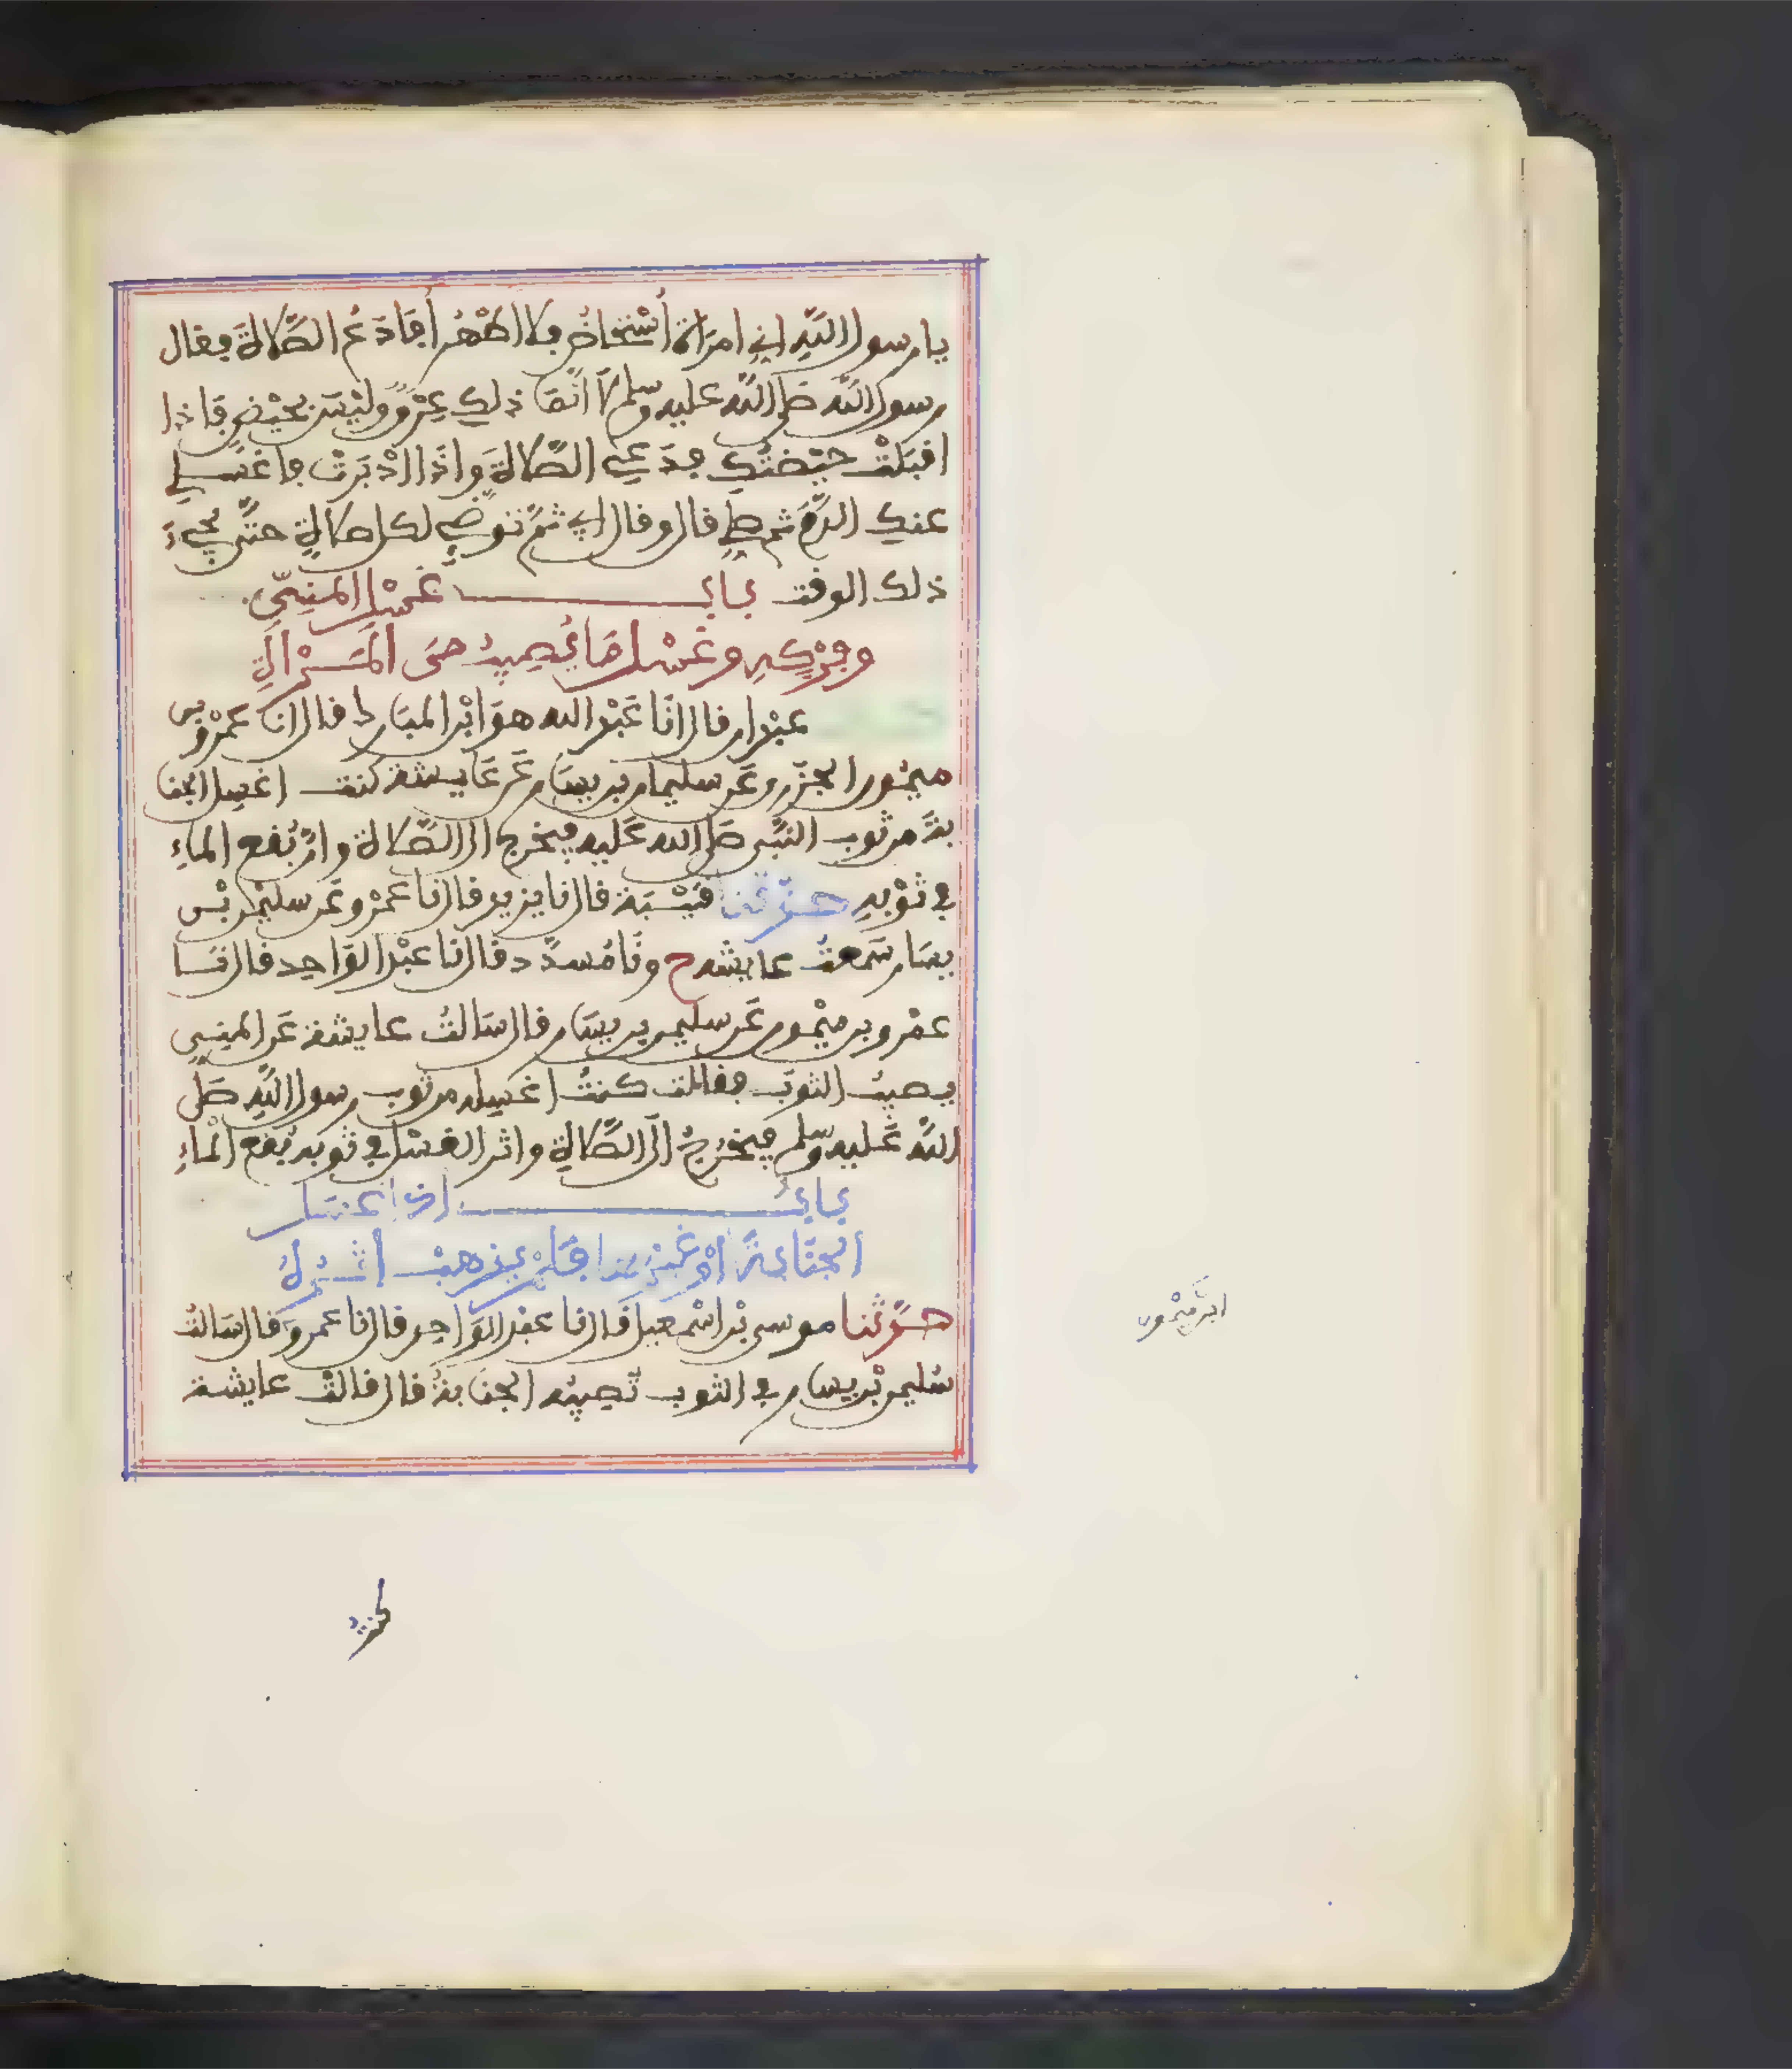 يا رسول الله اني امرأة أستحاض فلا اطهر أفادع الصلاة فقال
رسول الله صلى الله عليه وسلم لا انما ذلك عرق وليس بحيض فاذا
اقبلت حيضتك فدعي الصلاة واذا ادبرت فاغسلي
عنك الدم ثم صلي قال وقال ابي ثم توضي لكل صلاة حتى يجيء
ذلك الوقت باب غسل المني
وفركه وغسل ما يصيب من المرأة
عبدان قال انا عبد الله هو ابن المبارك قال انا عمرو بن
ميمون الجزري عن سليمان بن يسار عن عايشة كنت اغسل الجنا
بة من ثوب النبي صلى الله عليه فيخرج الى الصلاة وان بقع الماء
في ثوبه حدثنا قتيبة قال نا يزيد قال نا عمرو عن سليمن بن
يسار سمعت عايشة ح ونا مسدد قال نا عبد الواحد قال نا
عمرو بن ميمون عن سليمن بن يسار قال سالت عايشة عن المني
يصيب الثوب فقالت كنت اغسله من ثوب رسول الله صلى
الله عليه وسلم فيخرج الى الصلاة واثر الغسل في ثوبه بقع الماء
باب اذا غسل
الجنابة أو غيرها فلم يذهب أثره
حدثنا موسى بن اسمعيل قال نا عبد الواحد قال نا عمرو قال سالت
سليمن بن يسار في الثوب تصيبه الجنابة قال قالت عايشة
ابن ميمون